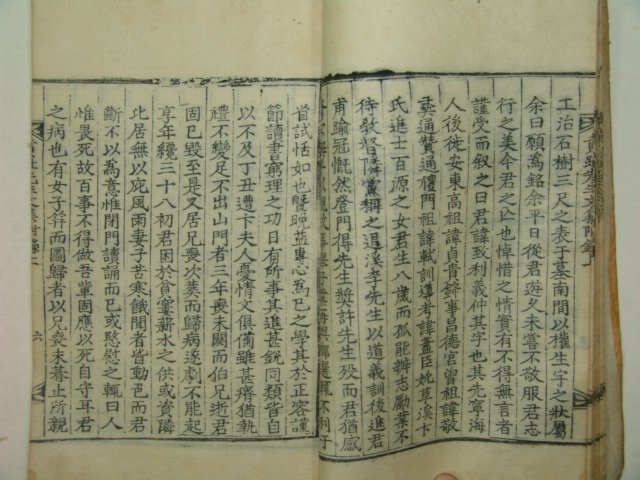 工治石樹三尺之表于墓南間以樓生字之狀屬
余曰願爲銘余平日從君遊久未嘗不敬服君志
行之美今君之亡也悼惜之情實有不得無言者
謹受而叙之曰君諱致利義仲其字也其先寧海
人後徙安東高祖諱自貴幹事昌德宮曾祖諱敬
通贊通禮門祖諱軾訓導考諱藎臣妣草溪卞
氏進士百源之女君生八歲而孤能辦志勵業不
待敎督隣黨稱之退溪李先生以道義訓後進君
甫踰冠慨然登門得先生奬許先生歿而君猶感
不利于
首試恬如也暨晩益專心爲已之學其於正容謹
節讀書窮理之功日有所事其進甚銳同類皆自
以不及丁丑遭卞夫人憂情文俱備雖甚瘠猶執
禮不變足不出山門者三年喪未闋而伯兄逝君
固已毁至是又居兄喪次葬而歸病遂劇不能起
享年纔三十八初君困於貧窶薪水之供或資隣
比居無以庇風雨妻子苦寒餓聞者皆動色而君
斷不以爲意惟閉門讀誦而已或慰之輒曰人
惟畏死故百事不得做吾輩固應以死自守耳君
之病也有女子筓而圖歸者以兄喪未朞止所親
六